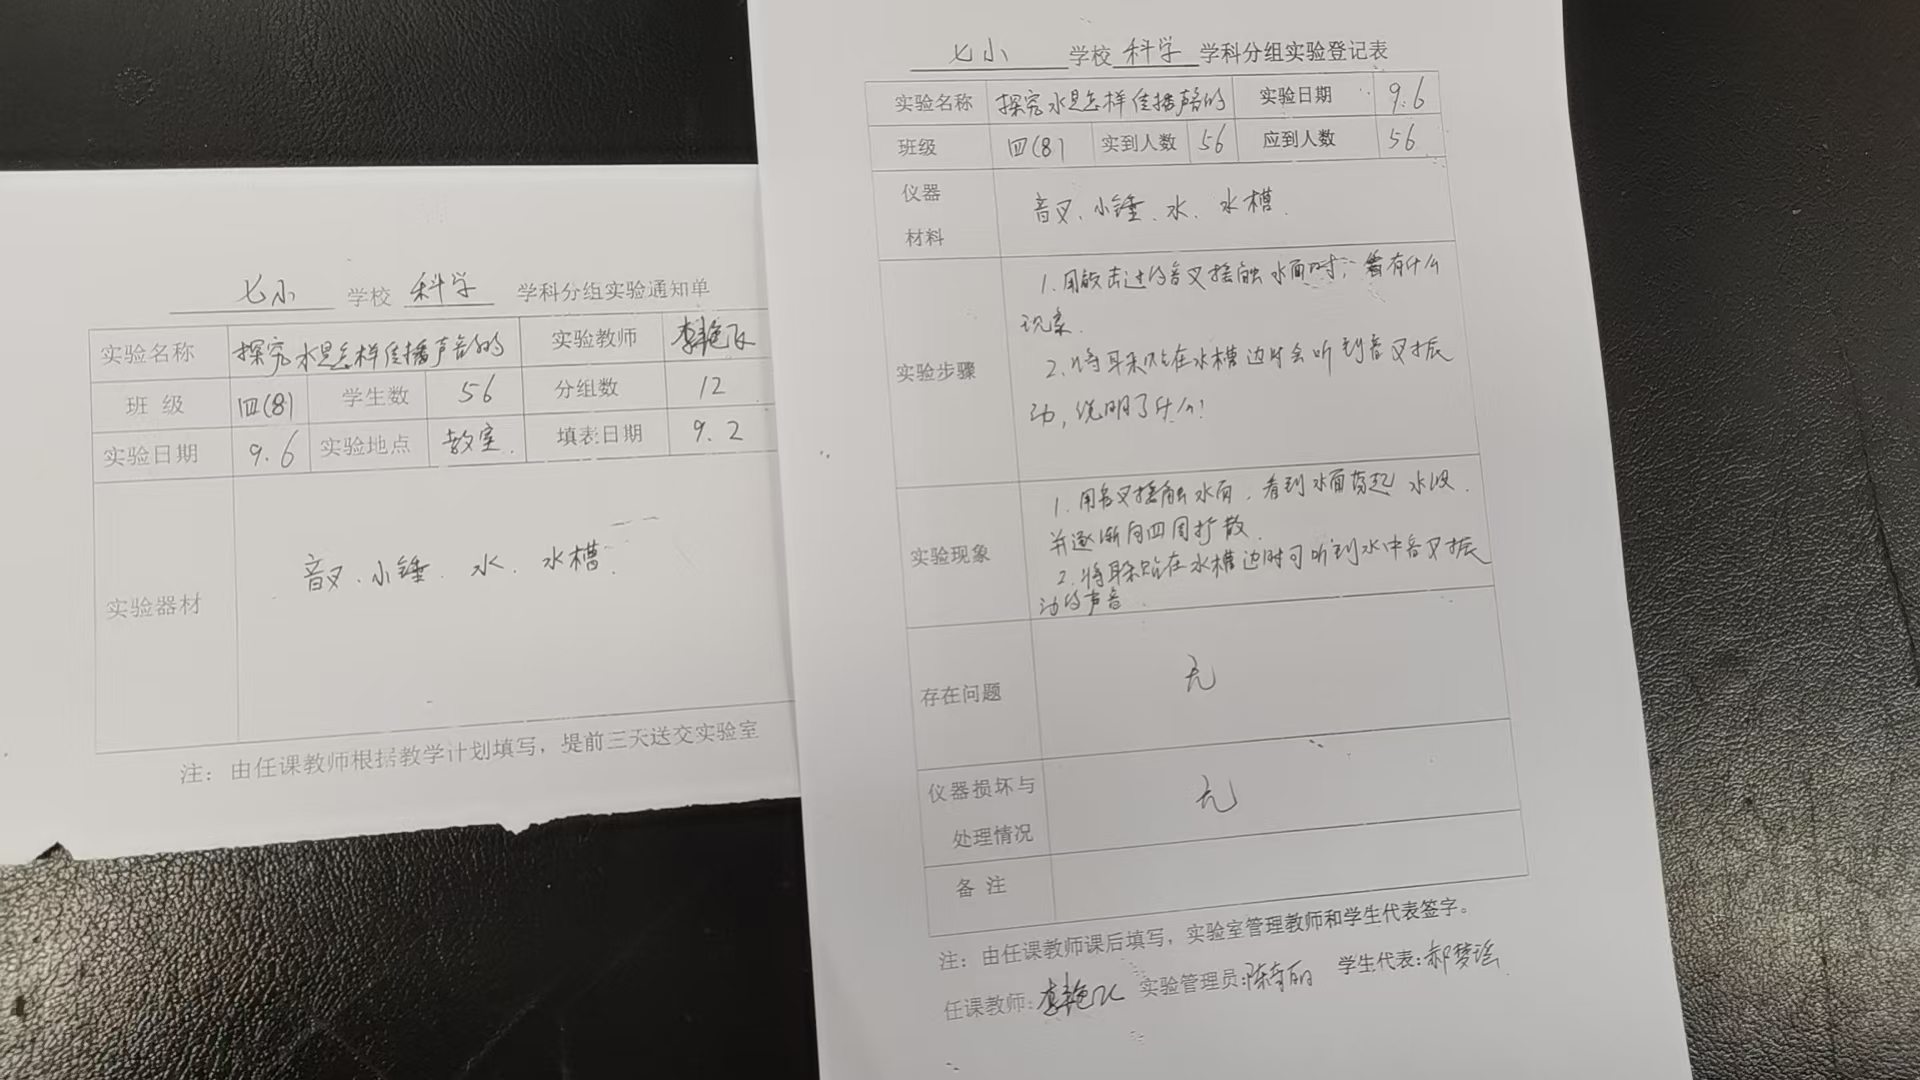 七小 学校 科学 学科分组实验通知单
实验名称 探究水是怎样传播声音的 实验教师 李艳飞
班 级 四(8) 学生数 56 分组数 12
实验日期 9.6 实验地点 教室. 填表日期 9.2
实验器材 音叉、小锤、水、水槽.
注：由任课教师根据教学计划填写，提前三天送交实验室
七小 学校 科学 学科分组实验登记表
实验名称 探究水是怎样传播声音的 实验日期 9.6
班级 四(8) 实到人数 56 应到人数 56
仪器
材料
音叉、小锤、水、水槽.
实验步骤
1.用敲击过的音叉接触水面时，看有什么
现象.
2.将耳朵贴在水槽边时会听到音叉振
动，说明了什么?
实验现象
1.用音叉接触水面，看到水面荡起水波.
并逐渐向四周扩散.
2.将耳朵贴在水槽边时可听到水中音叉振
动的声音.
存在问题 无
仪器损坏与
处理情况
无
备 注
注：由任课教师课后填写，实验室管理教师和学生代表签字。
任课教师:李艳飞 实验管理员:陈 丽 学生代表:郝梦瑶